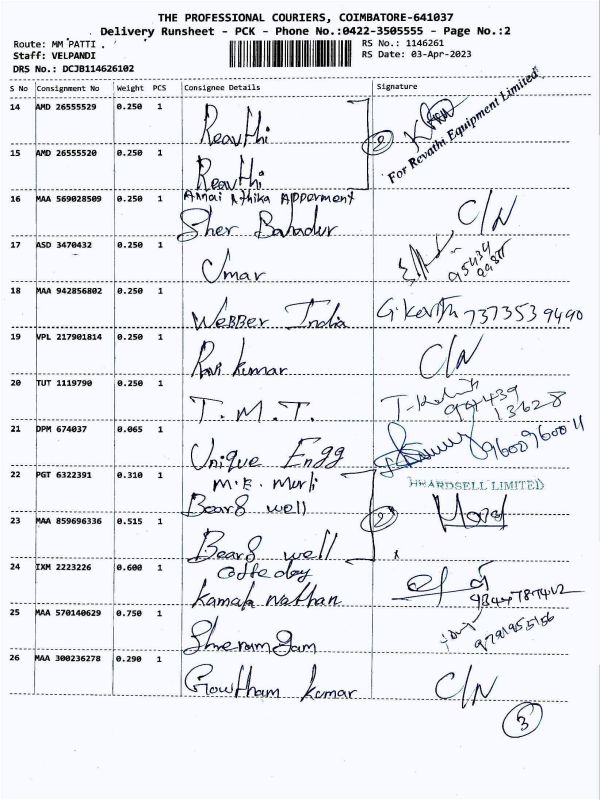 THE PROFESSIONAL COURIERS, COIMBATORE-641037
Delivery Runsheet - PCK - Phone No.:0422-3505555 - Page No.:2
Route: MM PATTI .
Staff: VELPANDI
DRS No.: DCJB114626102
RS No.: 1146261
RS Date: 03-Apr-2023
S No Consignment No Weight PCS Consignee Details Signature
14 AMD 26555529 0.250 1 Reavthi
For Revathi Equipment Limited
15 AMD 26555520 0.250 1 Reavthi
2
16 MAA 569028509 0.250 1 Annai Nthika Apperment
Sher Bahadur C/N
17 ASD 3470432 0.250 1 Umar
18 MAA 942856802 0.250 1 Webber India G. 7373539490
19 VPL 217901814 0.250 1 Ravi kumar C/N
20 TUT 1119790 0.250 1 T.M.T. 13628
21 DPM 674037 0.065 1 Unique Engg 9600960011
22 PGT 6322391 0.310 1 M.E. Murli
Bear8 well
HEARDSELL LIMITED
23 MAA 859696336 0.515 1 Bear8 well
2
24 IXM 2223226 0.600 1 Coffe day
Kamala nathan
25 MAA 570140629 0.750 1
26 MAA 300236278 0.290 1 Gowtham kumar C/N
3